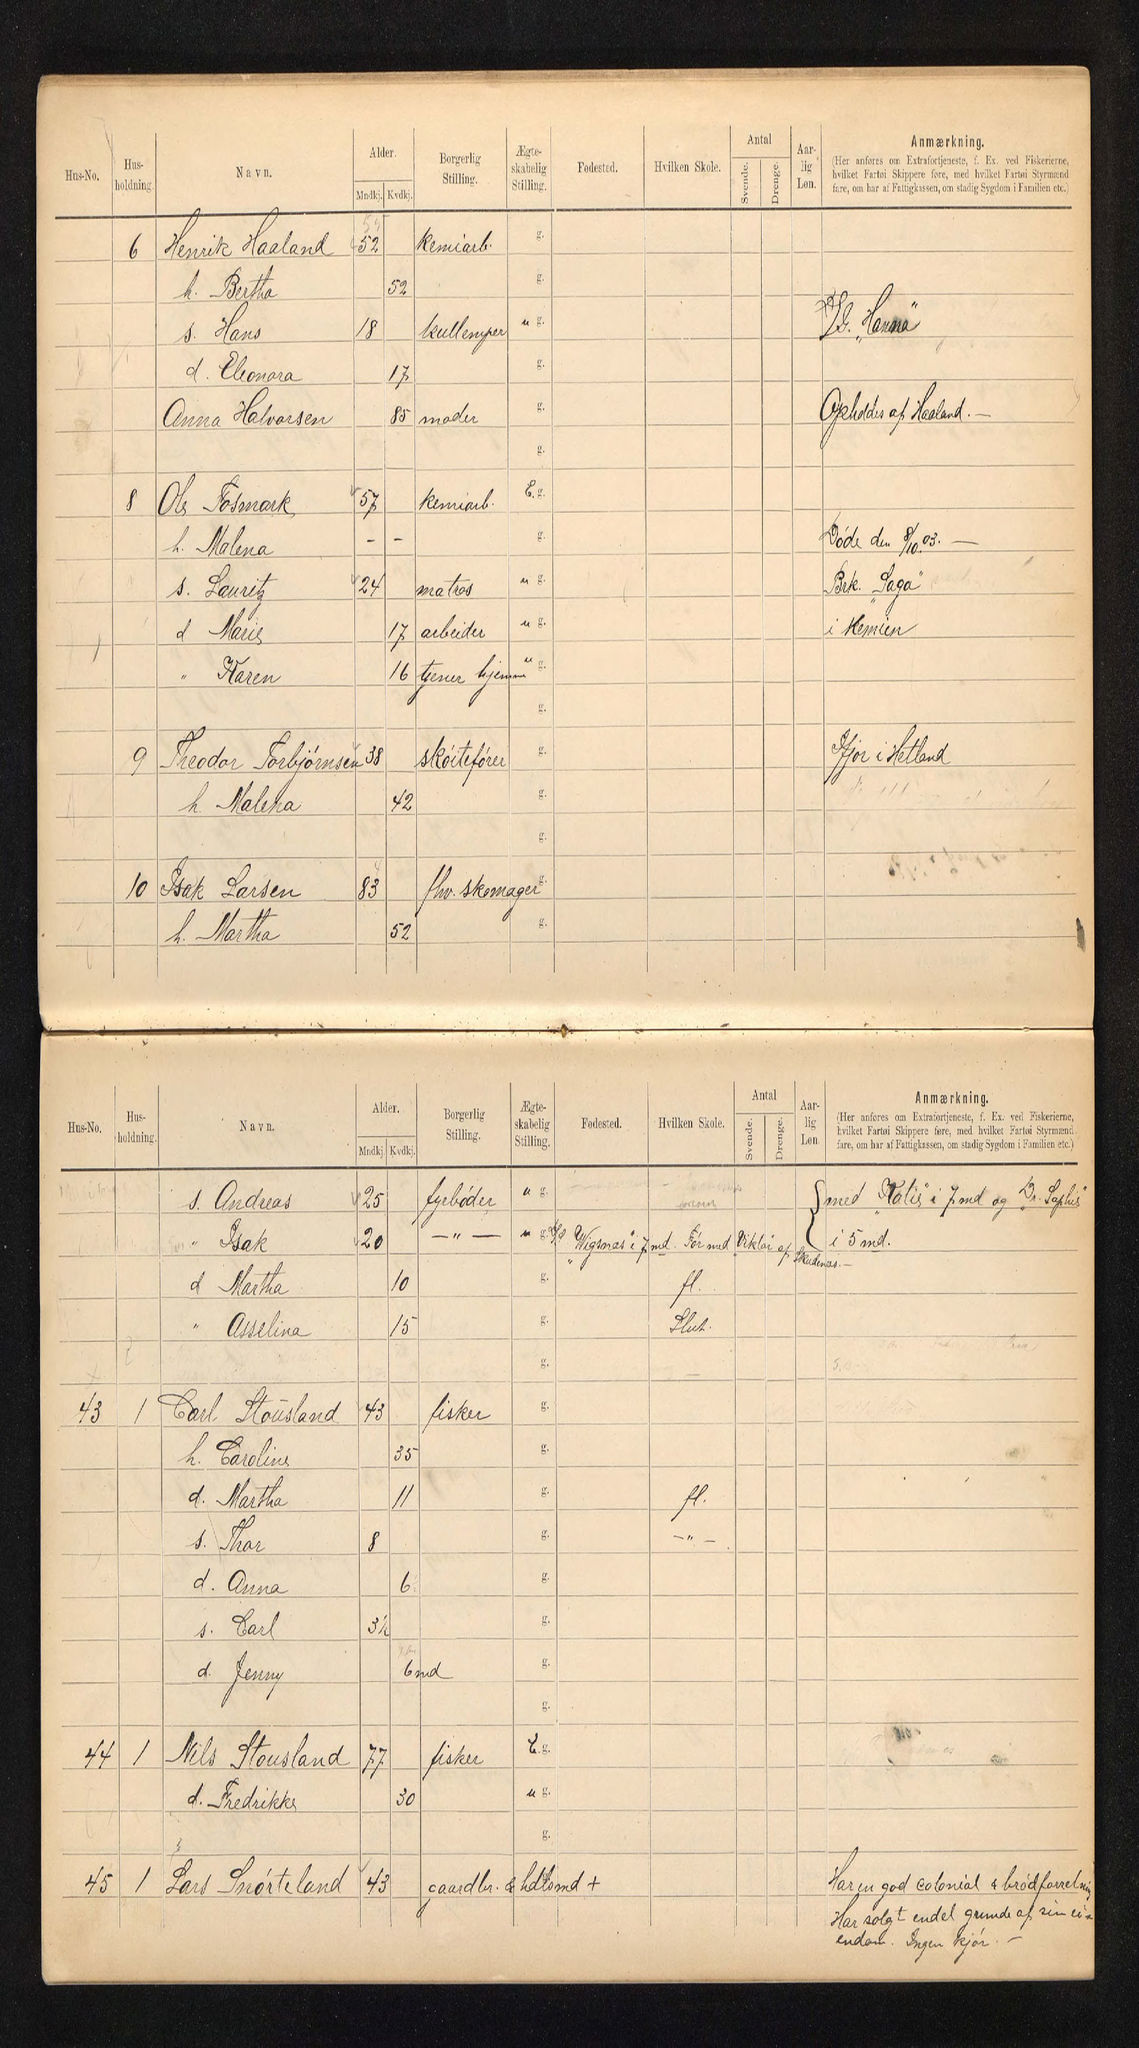 Hus-No. Hus-holdning. Navn. Alder. Mndkj. Kvdkj. Borgerlig Stilling. Ægte-skabelig Stilling. Fødested. Hvilken Skole. Antal Svende. Drenge. Aar-lig Løn. Anmærkning.
(Her anføres om Extrafortjeneste, f. Ex. ved Fiskerierne, hvilket Fartøi Skippere føre, med hvilket Fartøi Styrmænd fare, om har af Fattigkassen, om stadig Sygdom i Familien etc.)
6 Henrik Haaland 52 kemiarb. g.
h. Bertha 52 g.
s. Hans 18 kullemper u g. "Hanna"
d. Eleonora 17 g.
Anna Halvorsen 85 moder g. Opholdes af Haaland. —
g.
8 Ole Fosmark 57 kemiarb. E. g.
h. Malena - - g. Døde den 8/10.03. —
s. Lauritz 24 matros u g. Brk. "Saga"
d Marie 17 arbeider u g. i Kemien
" Karen 16 tjener hjemme u g.
g.
9 Theodor Torbjørnsen 38 skøitefører g. Ifjor i Hetland
h. Malena 42 g.
g.
10 Isak Larsen 83 fhv. skomager g.
h. Martha 52 g.
Hus-No. Hus-holdning. Navn. Alder. Mndkj. Kvdkj. Borgerlig Stilling. Ægte-skabelig Stilling. Fødested. Hvilken Skole. Antal Svende. Drenge. Aar-lig Løn. Anmærkning.
(Her anføres om Extrafortjeneste, f. Ex. ved Fiskerierne, hvilket Fartøi Skippere føre, med hvilket Fartøi Styrmænd fare, om har af Fattigkassen, om stadig Sygdom i Familien etc.)
s. Andreas 25 fyrbøder u g. med "Katie" i 7 md og "Dr. Sophie"
" Isak 20 — " — u g. "Wigsnæs" i 7 md. Før med Viktor af Skudenæs. — i 5 md.
d Martha 10 g. fl.
" Asselina 15 g. Slut.
g.
43 1 Carl Stousland 43 fisker g.
h. Caroline 35 g.
d. Martha 11 g. fl.
s. Thor 8 g. - " -
d. Anna 6 g.
s. Carl 3½ g.
d. Jenny 6 md g.
g.
44 1 Nils Stousland 77 fisker E. g.
d. Fredrikke 30 u g.
g.
45 1 Lars Snørteland 43 gaardbr. & hdlsmd + Har en god colonial & brødforretning
Har solgt endel grunde af sin ei-
endom. Ingen kjør. —